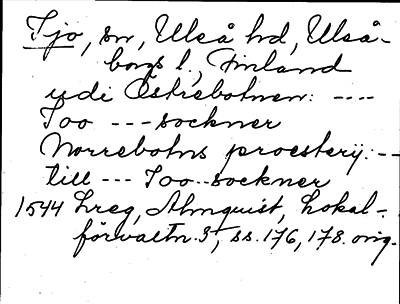 Ijo, sn, Uleå hd, Uleå-
borgs l., Finland
udi Östrebotnen: ----
Ioo --- sockner
Norrebotns proesterij: --
till --- Ioo -- sockner
1544 Lreg, Almquist, Lokal-
förvaltn. 3, ss. 176, 178. orig.